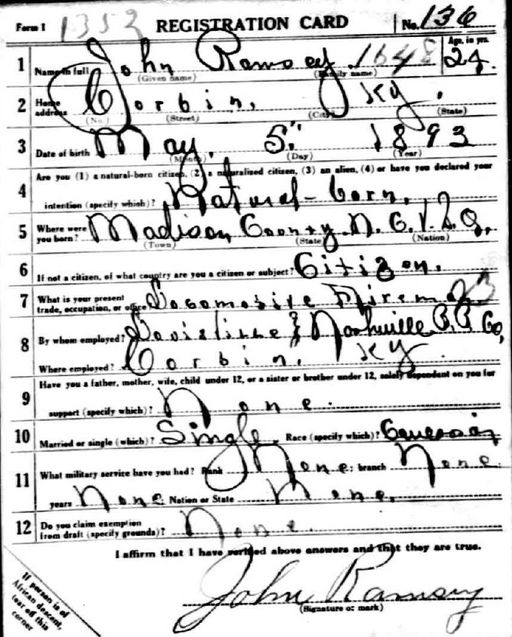 Form 1 1353 REGISTRATION CARD No. 136
1 Name in full John Ramsey 1648 Age, in yrs. 24
(Given name) (Family name)
2 Home address Corbin, Ky.
(No.) (Street) (City) (State)
3 Date of birth May, 5. 1893
(Month) (Day) (Year)
4 Are you (1) a natural-born citizen, (2) a naturalized citizen, (3) an alien, (4) or have you declared your
intention (specify which)? Natural-born,
5 Where were you born? Madison Coonty N. C.
(Town) (State) (Nation)
6 If not a citizen, of what country are you a citizen or subject? Citizen.
7 What is your present trade, occupation, or office Locomotive Fireman
8 By whom employed? Louisville & Nashville R.R Co,
Where employed? Corbin, Ky.
9 Have you a father, mother, wife, child under 12, or a sister or brother under 12, solely dependent on you for
support (specify which)? None.
10 Married or single (which)? Single. Race (specify which)?
11 What military service have you had? Rank None. branch None.
years None Nation or State None.
12 Do you claim exemption from draft (specify grounds)? None.
I affirm that I have verified above answers and that they are true.
John Ramsey
(Signature or mark)
If person is of
African descent,
tear off this
corner